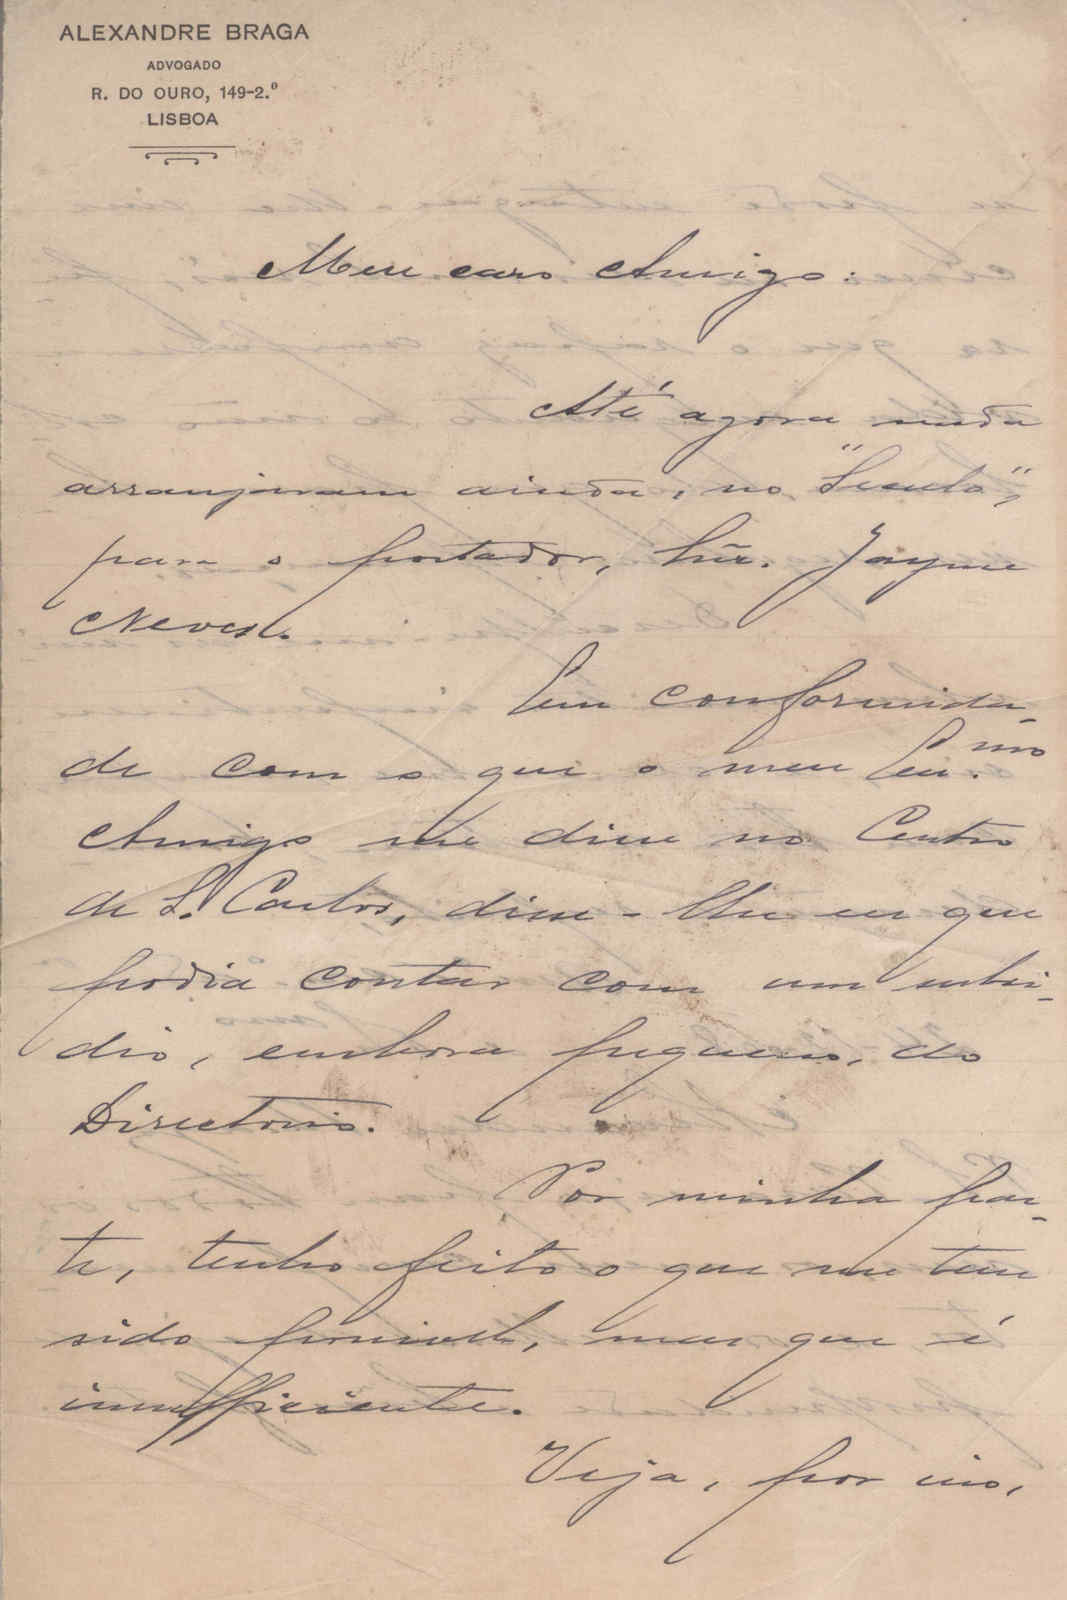 ALEXANDRE BRAGA
ADVOGADO
R. DO OURO, 149-2.º
LISBOA
Meu caro Amigo:
Até agora nada
arranjaram ainda, no "Seculo",
para o portador, snr. Jayme
Neves.
Em conformida-
de com o que o meu Em.mo
Amigo me disse no Centro
de S. Carlos, disse-lhe eu que
podia contar com um subsi-
dio, embora pequeno, do
Directorio.
Por minha par-
te, tenho feito o que me tem
sido possivel, mas que é
insufficiente.
Veja, por isso,